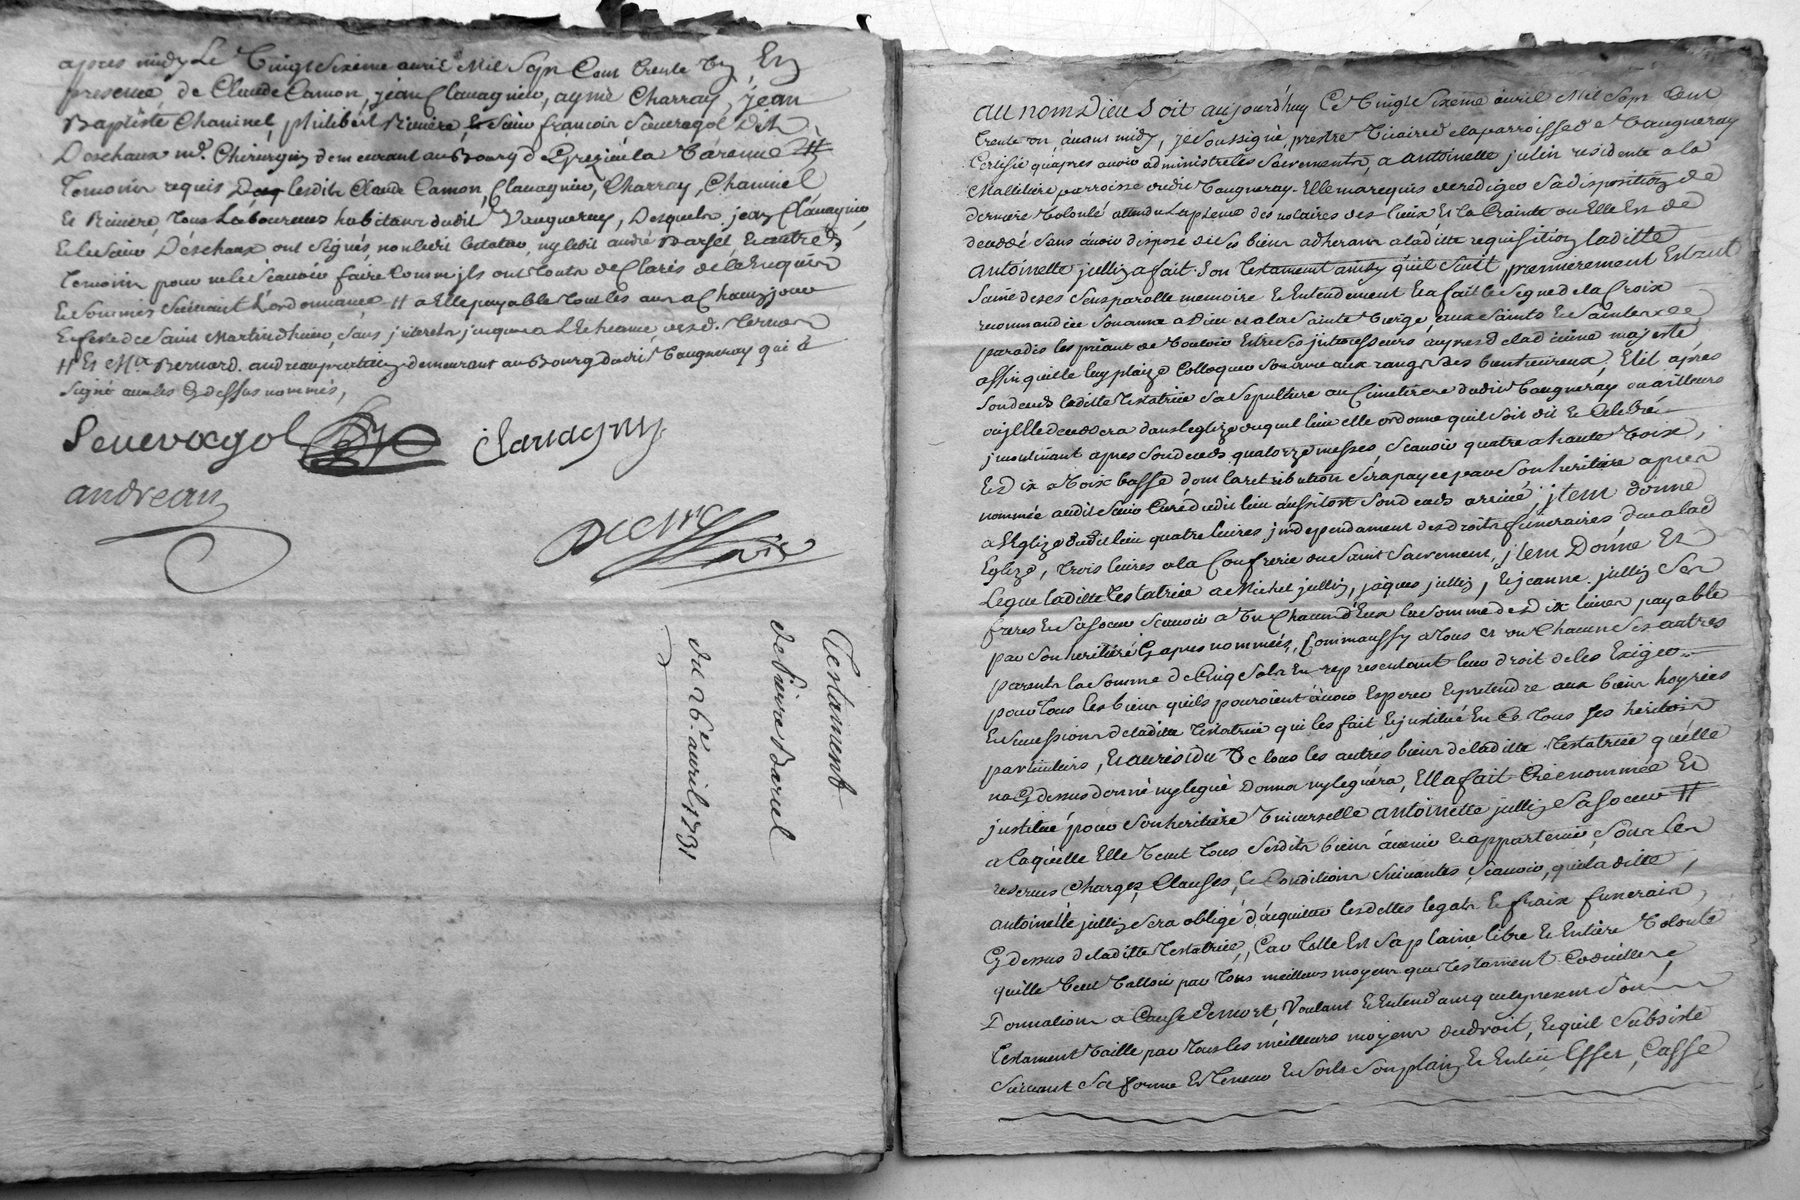 apres midy Le Vingt Sixeme avril Mil Sept Cent trente Un En
presence de Claude Camon, jean Clavagnieu, aymé Charray, jean
Baptiste Chavinel, philibert Riviere, & Sieur francois Seuvragol
Deschaux me. Chirurgien demeurant au Bourg de Grezieu la Varenne #
Temoins requis lesdits Claude Camon, Clavagnieu, Charray, Chavinel
Et Riviere, Tous Laboureurs habitans dudit Vaugneray, Desquels jean Clavagnieu,
Et le Sieur Deschaux ont Signés, non ledit testateur, ny ledit andré Barsel, Et autres
Temoins pour ne le Scavoir faire Comm jls ont Touts declarés de ce Enquis
Et Sommés Suivant L'ordonnance # a Elle payable Tous les ans a Chacun jour
Et feste de Saint Martin dhiver, Sans jnterets jusques a L'Echeance desd. Termes
# Et Me. Bernard andreau praticien demeurant au Bourg dudit Vaugneray qui a
Signé avec les Cy dessus nommés,
Seuvragol
Clavagny
andreau
Testament
de Pierre Barsel
du 26e. avril 1731
au nom Dieu Soit aujourd'huy Ce Vingt Sixeme avril Mil Sept Cent
trente un, avant midy, je Soussigné, prestre Vicaire de la parroisse de Vaugneray
Certifie qu'apres avoir administré les Sacrements, a antoinette julin residente a la
Malletiere parroisse dudit Vaugneray. Elle ma requis de rediger Sa disposition de
derniere Volonté attendu la des notaires des lieux Et la Crainte ou Elle Est de
deceddé Sans avoir disposé de Ses biens adherant a laditte requisition laditte
antoinette jullin a fait Son Testament ainsy qu'il Suit premierement Estant
Saine de Ses Sens parolle memoire Et Entendement Et a fait le Signe de la Croix
recommandée Son ame a Dieu Et a la Sainte Vierge, aux Saints Et Saintes de
paradis les priant de Vouloir Estre Ses jntercesseurs aupres de la divine majesté
affin quelle luy plaize Colloquer Son ame aux rangs des bienheureux, Elit apres
Son deceds laditte Testatrice Sa Sepulture au Cimetiere dudit Vaugneray ou ailleurs
ou Elle deceddera dans leglize duquel lieu elle ordonne quil Soit dit Et Celebré
jncontinant apres Son deceds quatorze messes, Scavoir quatre a haute Voix,
Et Dix a Voix basse dont la retribution Sera payée par Son heritiere apres
nommée audit Sieur Curé dudit lieu aussitost Son deceds arrivé, jtem donne
a l'Eglize dudit lieu quatre livres jndependament des droits funeraires deue a lad
Eglize, Trois livres a la Confrerie du Saint Sacrement, jtem Donne Et
Legue laditte Testatrice a Michel jullin, jaques jullin, Et jeanne jullin Ses
freres Et Sa Soeur Scavoir a Un Chacun d'Eux la Somme de Dix livres payable
par Son heritiere Cy apres nommées, Comm aussy a tous Et un Chacun Ses autres
parents la Somme de Cinq Sols En representant leur droit de les Exiger
pour Tous les biens quils pouroient avoir Esperer Et pretendre aux biens hoyries
Et Successions de laditte Testatrice qui les fait Et jnstitué En Ce Tous Ses heritiers
particuliers, Et au residu De tous les autres biens de laditte Testatrice qu'elle
na Cy dessus donné ny legué Donnera ny leguera, Ell a fait Créé nommée Et
jnstitué pour Son heritiere Universelle antoinette jullin Sa Soeur #
a laquelle Elle Veut Tous Sesdits biens avenir Et appartenir, Sous les
reserves Charges, Clauses, Et Conditions Suivantes, Scavoir, que laditte,
antoinette jullin Sera obligé d'acquitter les dettes legats Et fraix funerain,
Cy dessus de laditte Testatrice, Car Telle Est Sa plaine libre Et Entiere Volonté
quelle Veut Valloir par Tous meilleurs moyens que Testament Codicille,
Donnation a Cause de mort, Voulant Et Entend ainsy que le present Son
Testament Vaille par tous les meilleurs moyens du droit, Et quil Subsiste
Suivant Sa forme Et teneur Et Sorte Son plain Et Entier Effet, Casse